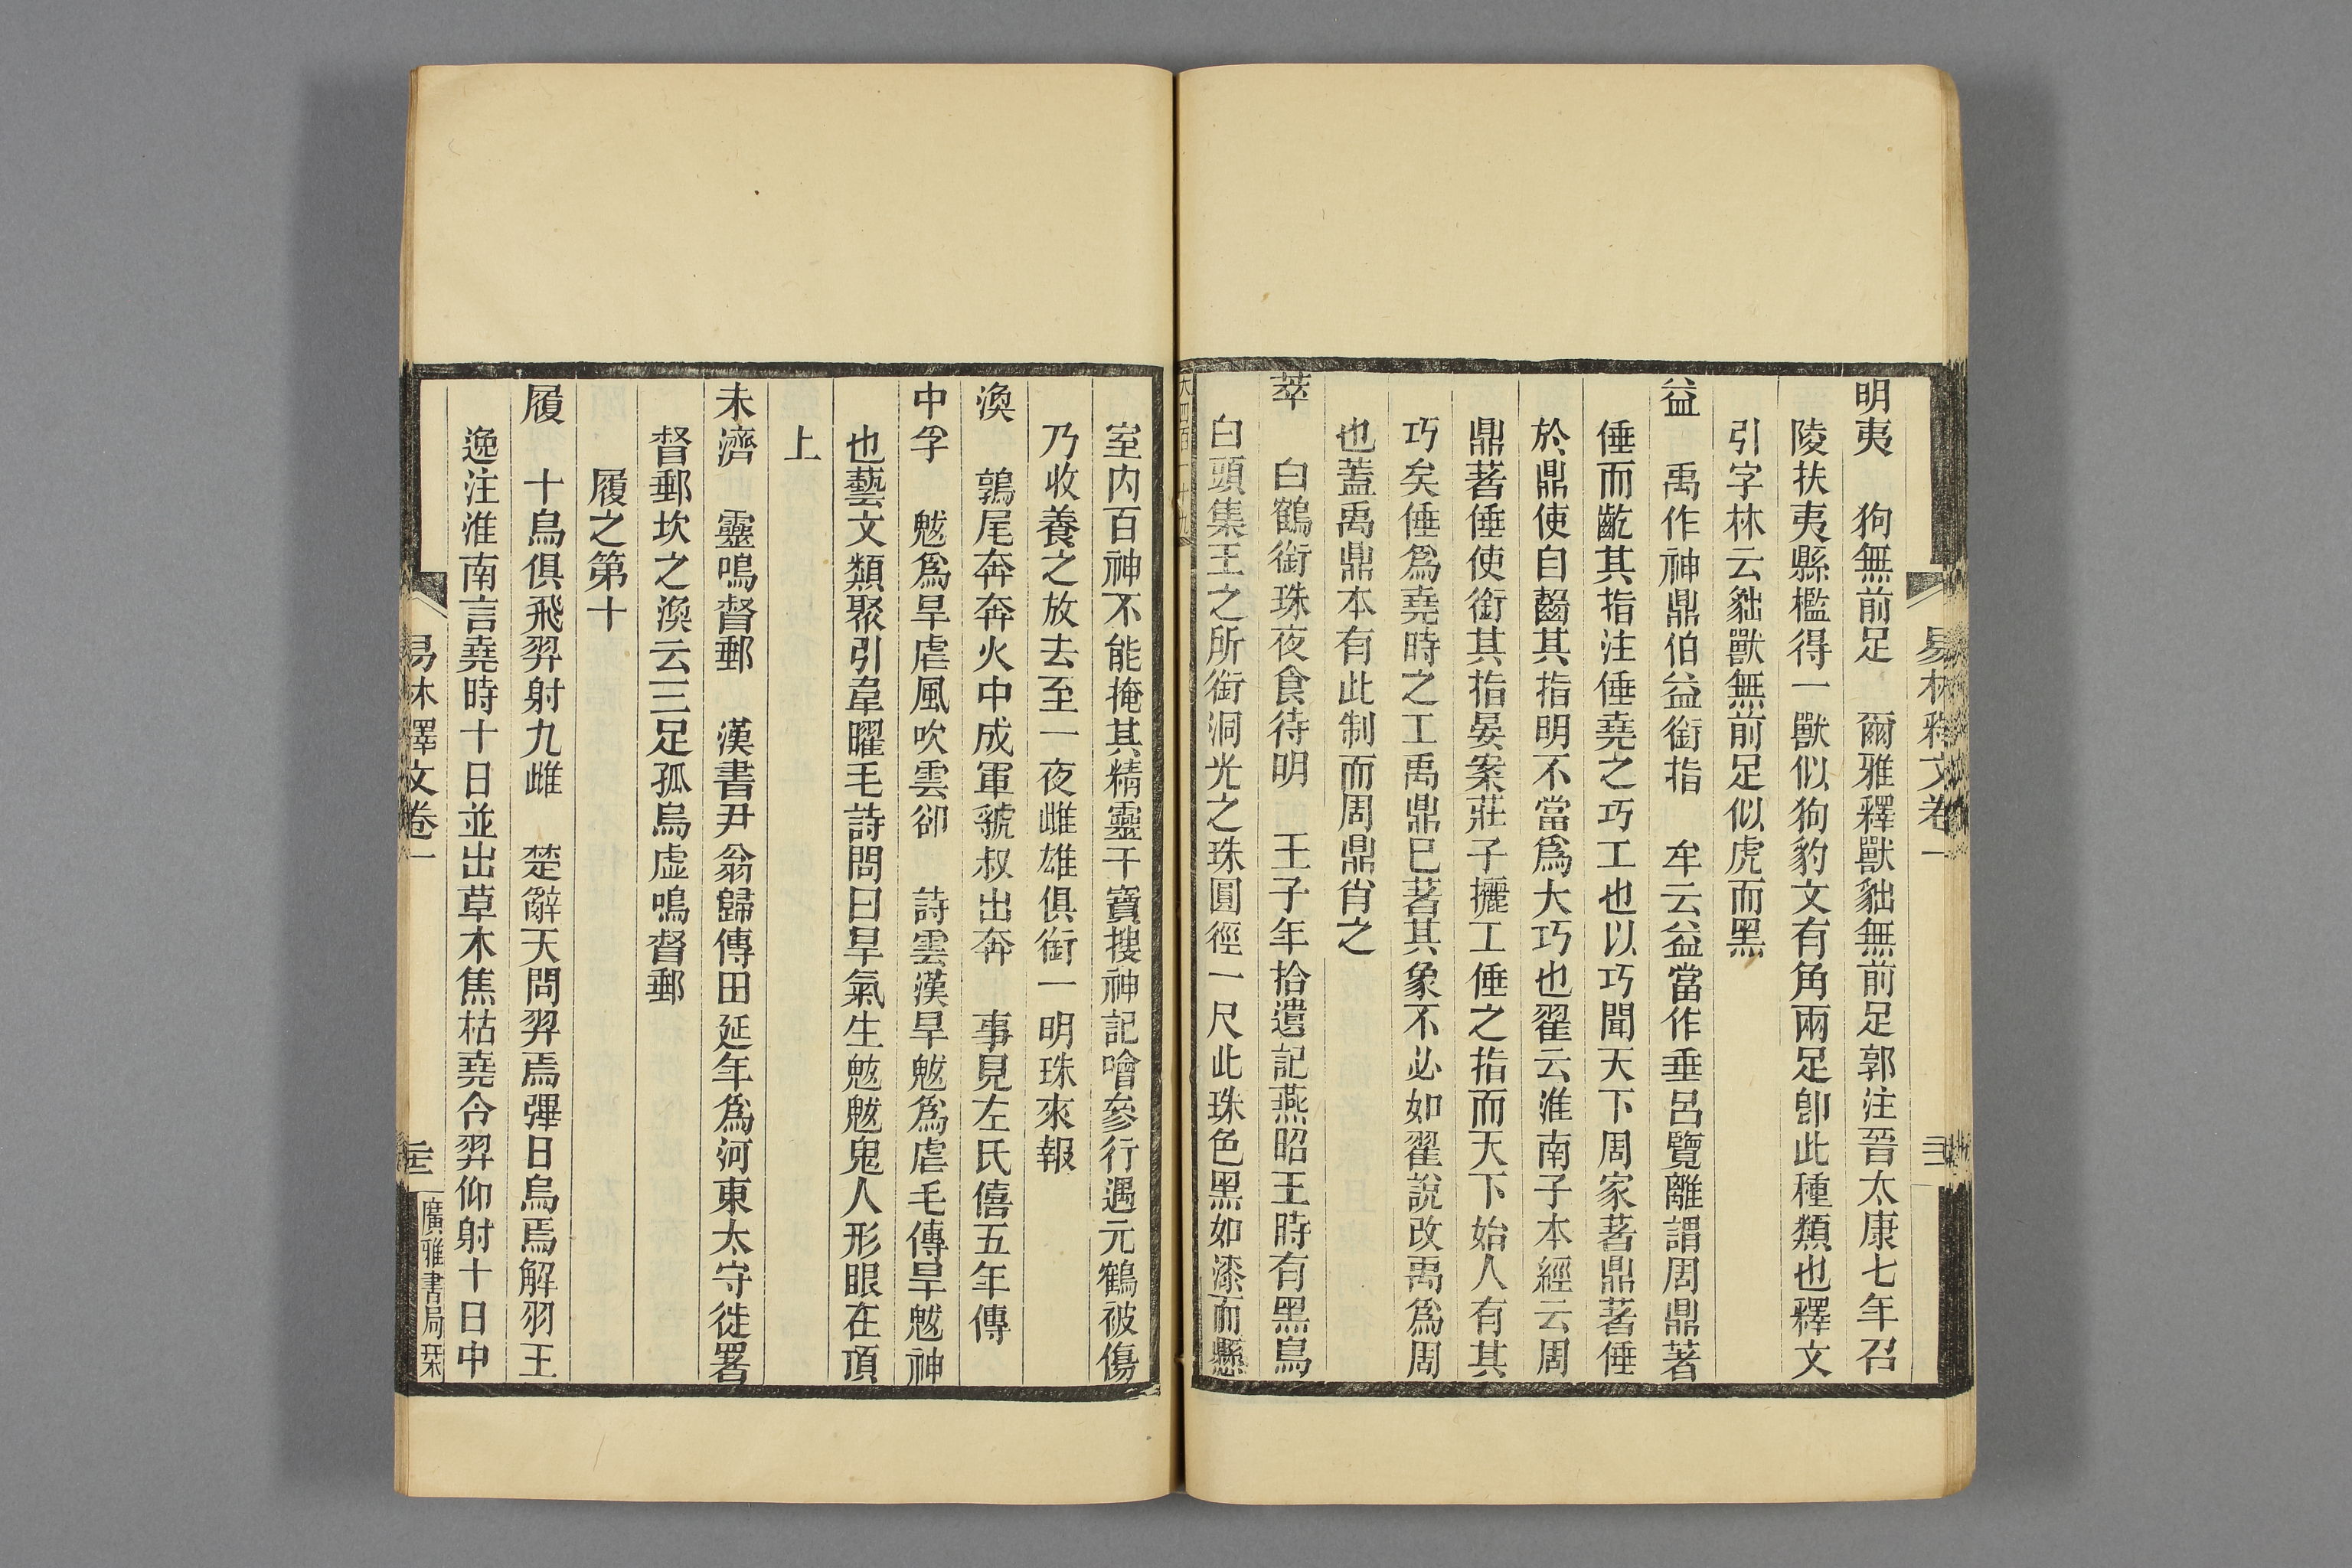 易林釋文卷一
明夷　狗無前足　爾雅釋獸貀無前足郭注晉太康七年召
陵扶夷縣檻得一獸似狗豹文有角兩足卽此種類也釋文
引字林云貀獸無前足似虎而黑
益　禹作神鼎伯益銜指　牟云益當作垂呂覽離謂周鼎著
倕而齕其指注倕堯之巧工也以巧聞天下周家著鼎著倕
於鼎使自齧其指明不當爲大巧也翟云淮南子本經云周
鼎著倕使銜其指晏案莊子攦工倕之指而天下始人有其
巧矣倕爲堯時之工禹鼎已著其象不必如翟說改禹爲周
也蓋禹鼎本有此制而周鼎肖之
萃　白鶴銜珠夜食待明　王子年拾遺記燕昭王時有黑鳥
白頭集王之所銜洞光之珠圓徑一尺此珠色黑如漆而懸
室內百神不能掩其精靈干寶搜神記噲參行遇元鶴被傷
乃收養之放去至一夜雌雄俱銜一明珠來報
渙　鶉尾奔奔火中成軍虢叔出奔　事見左氏僖五年傳
中孚　魃爲旱虐風吹雲卻　詩雲漢旱魃爲虐毛傳旱魃神
也藝文類聚引韋曜毛詩問曰旱氣生魃魃鬼人形眼在頂
上
未濟　靈鳴督郵　漢書尹翁歸傳田延年爲河東太守徙署
督郵坎之渙云三足孤烏虛鳴督郵
履之第十
履　十烏俱飛羿射九雌　楚辭天問羿焉彃日烏焉解羽王
逸注淮南言堯時十日並出草木焦枯堯令羿仰射十日中
易林釋文卷一
廣雅書局栞